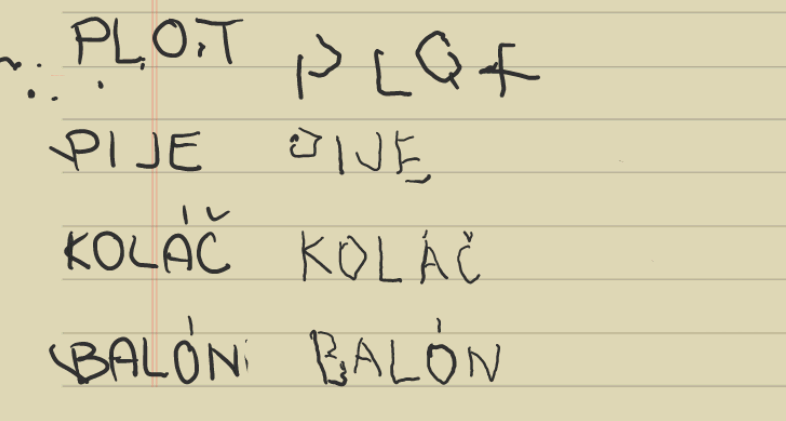 PLOT PLOT
PIJE PIJE
KOLÁČ KOLÁČ
BALÓN BALÓN